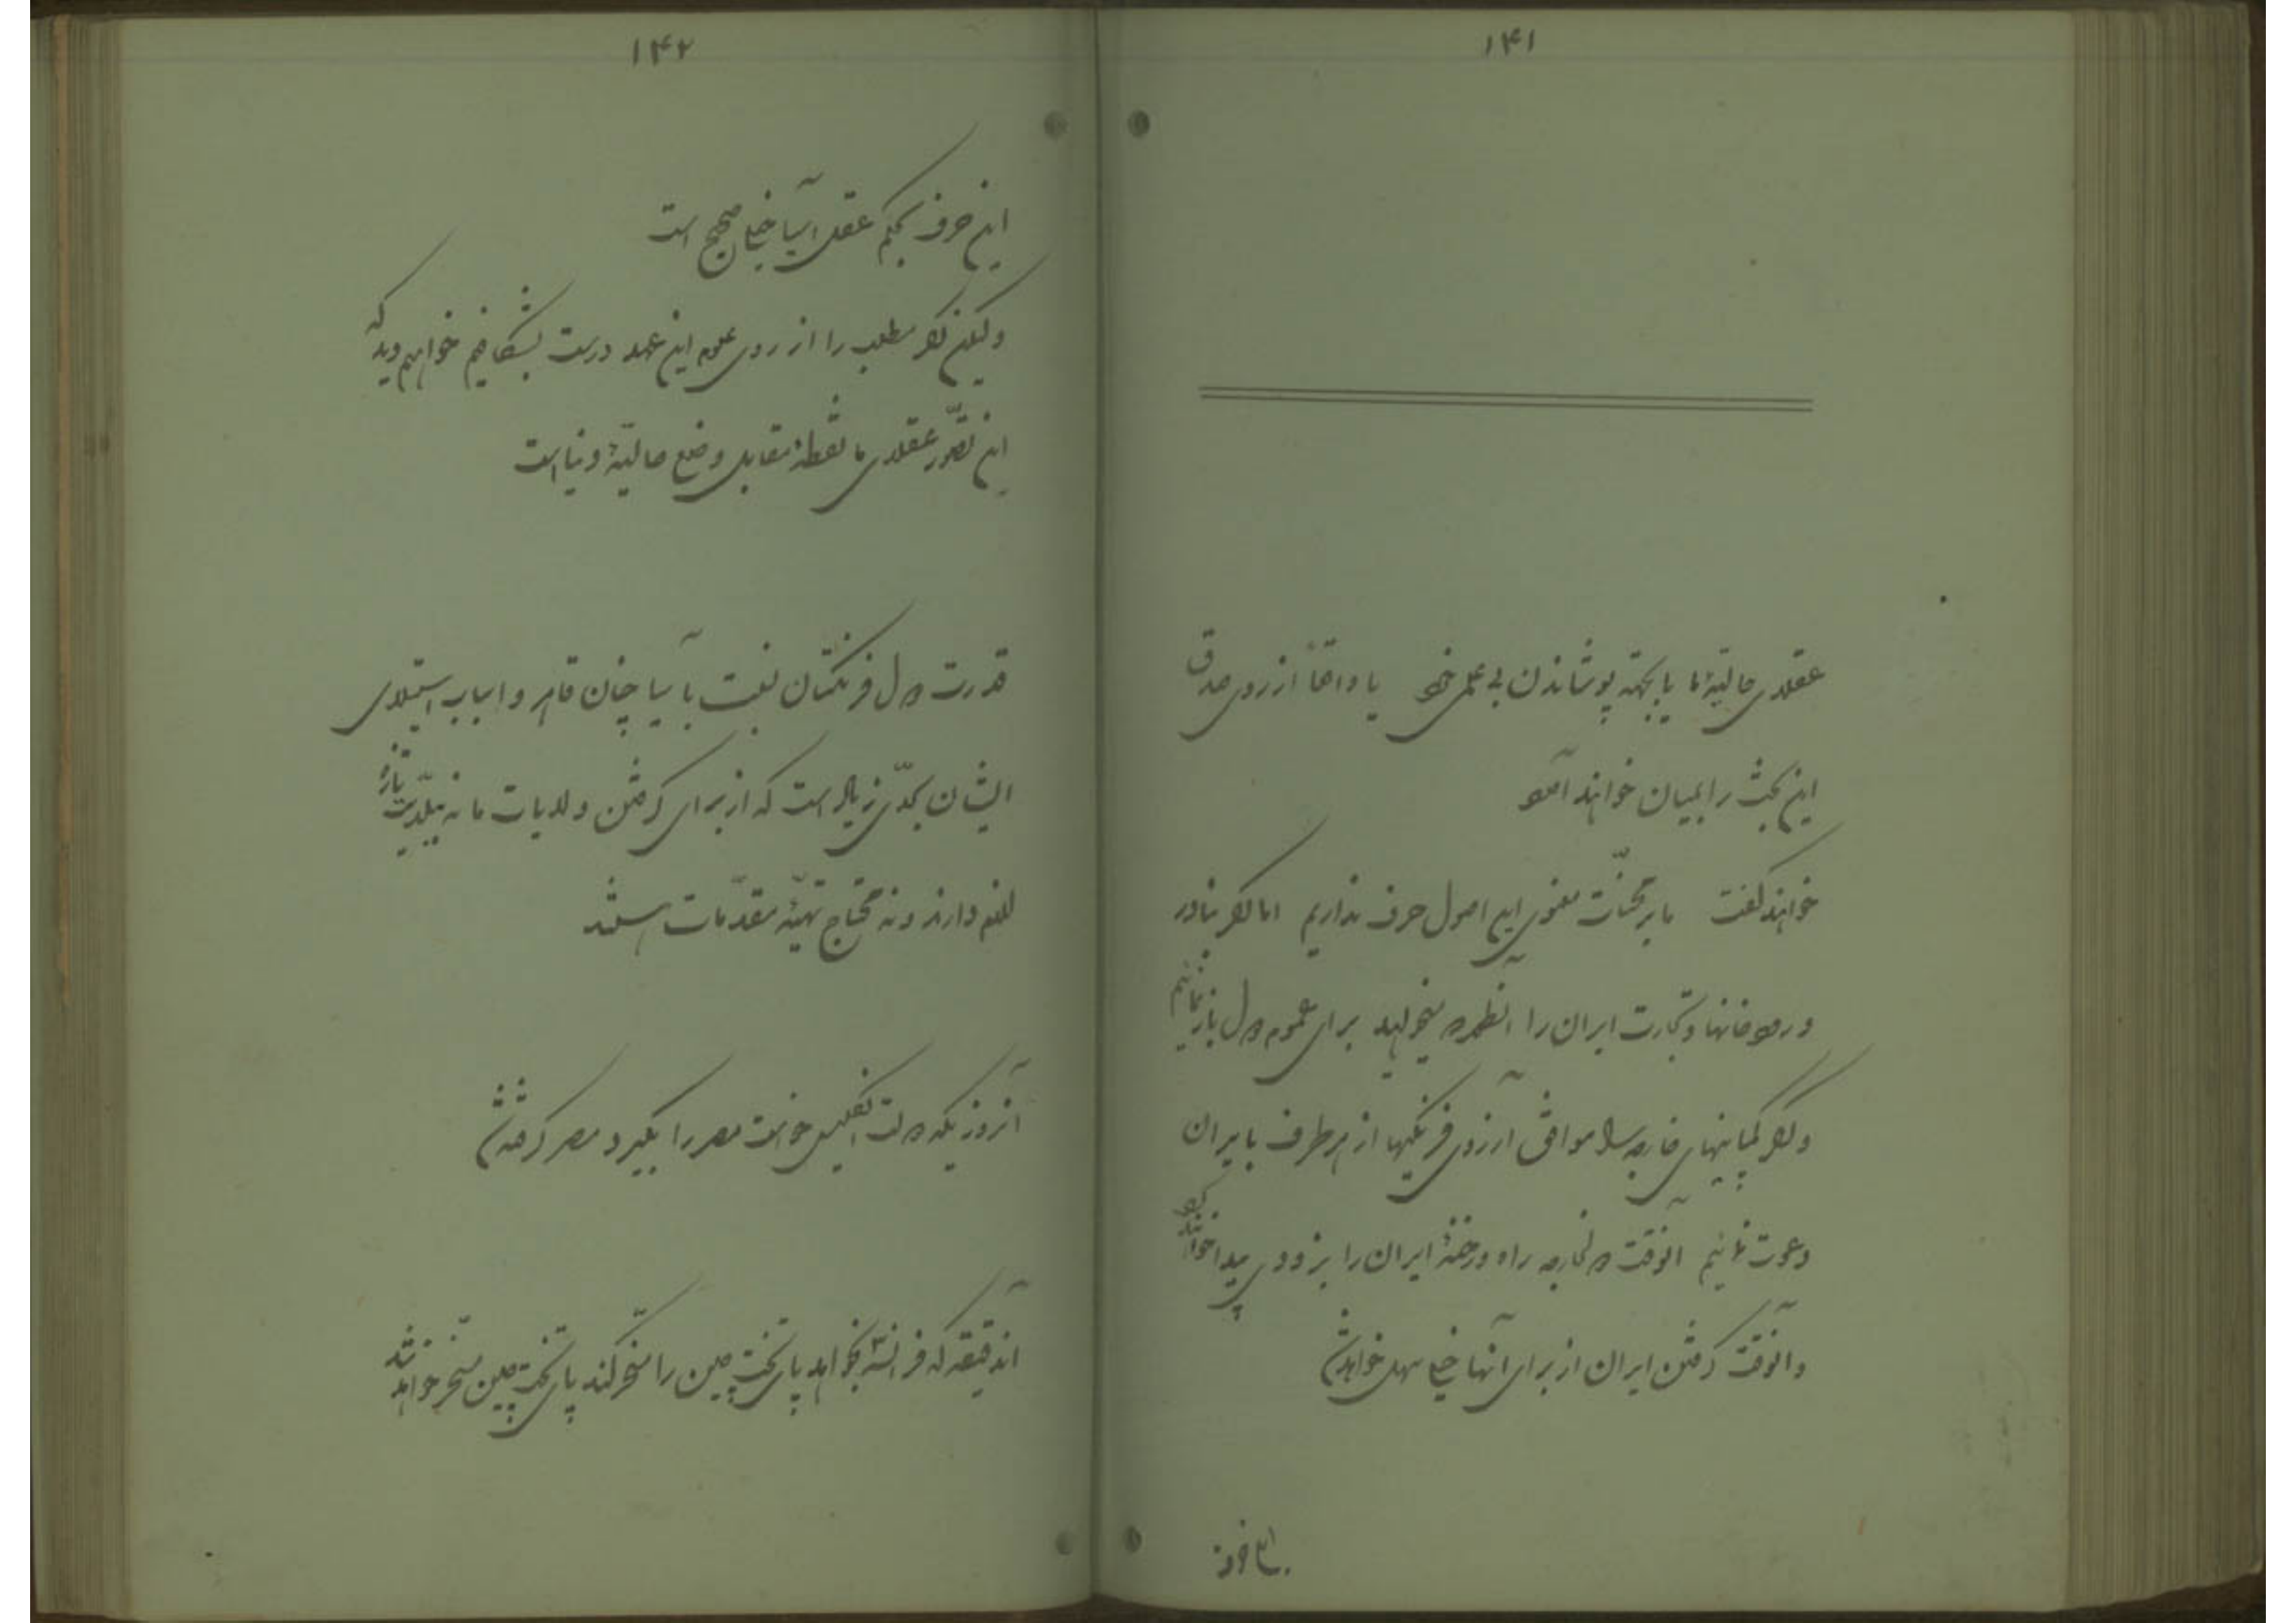 ۱۴۱
عقلای حالیهٔ ما یا بجهة پوشاندن بی علمی خود یا واقعاً از روی صدق
این بحث را بمیان خواهند آورد
خواهند گفت ما بر محسنات معنوی این اصول حرف نداریم اما اگر بنادر
و رودخانها و تجارت ایران را آنطور که میخواهید برای عموم دول باز نمائیم
و اگر کمپانیهای خارجه را موافق آرزوی فرنگیها از هر طرف بایران
دعوت نمائیم آنوقت دول خارجه راه و رخنهٔ ایران را بزودی پیدا خواهند کرد
و آنوقت گرفتن ایران از برای آنها خیلی سهل خواهد شد
۱۴۲
این حرف بحکم عقل آسیا خیلی صحیح است
ولیکن اگر مطلب را از روی علوم این عهد درست بشکافیم خواهیم دید که
این تصور عقلای ما نقطهٔ مقابل وضع حالیهٔ دنیا است
قدرت دول فرنگستان نسبت بآسیا چنان قاهر و اسباب استیلای
ایشان بحدّی زیاد است که از برای گرفتن ولایات ما نه بتدبیر تازه
لازم دارند و نه محتاج تهیّهٔ مقدّمات هستند
آنروزیکه دولت انگلیس خواست مصر را بگیرد مصر گرفته شد
آندقیقه که فرانسه بخواهد پای تخت چین را مسخّر کند پای تخت چین مسخّر خواهد شد